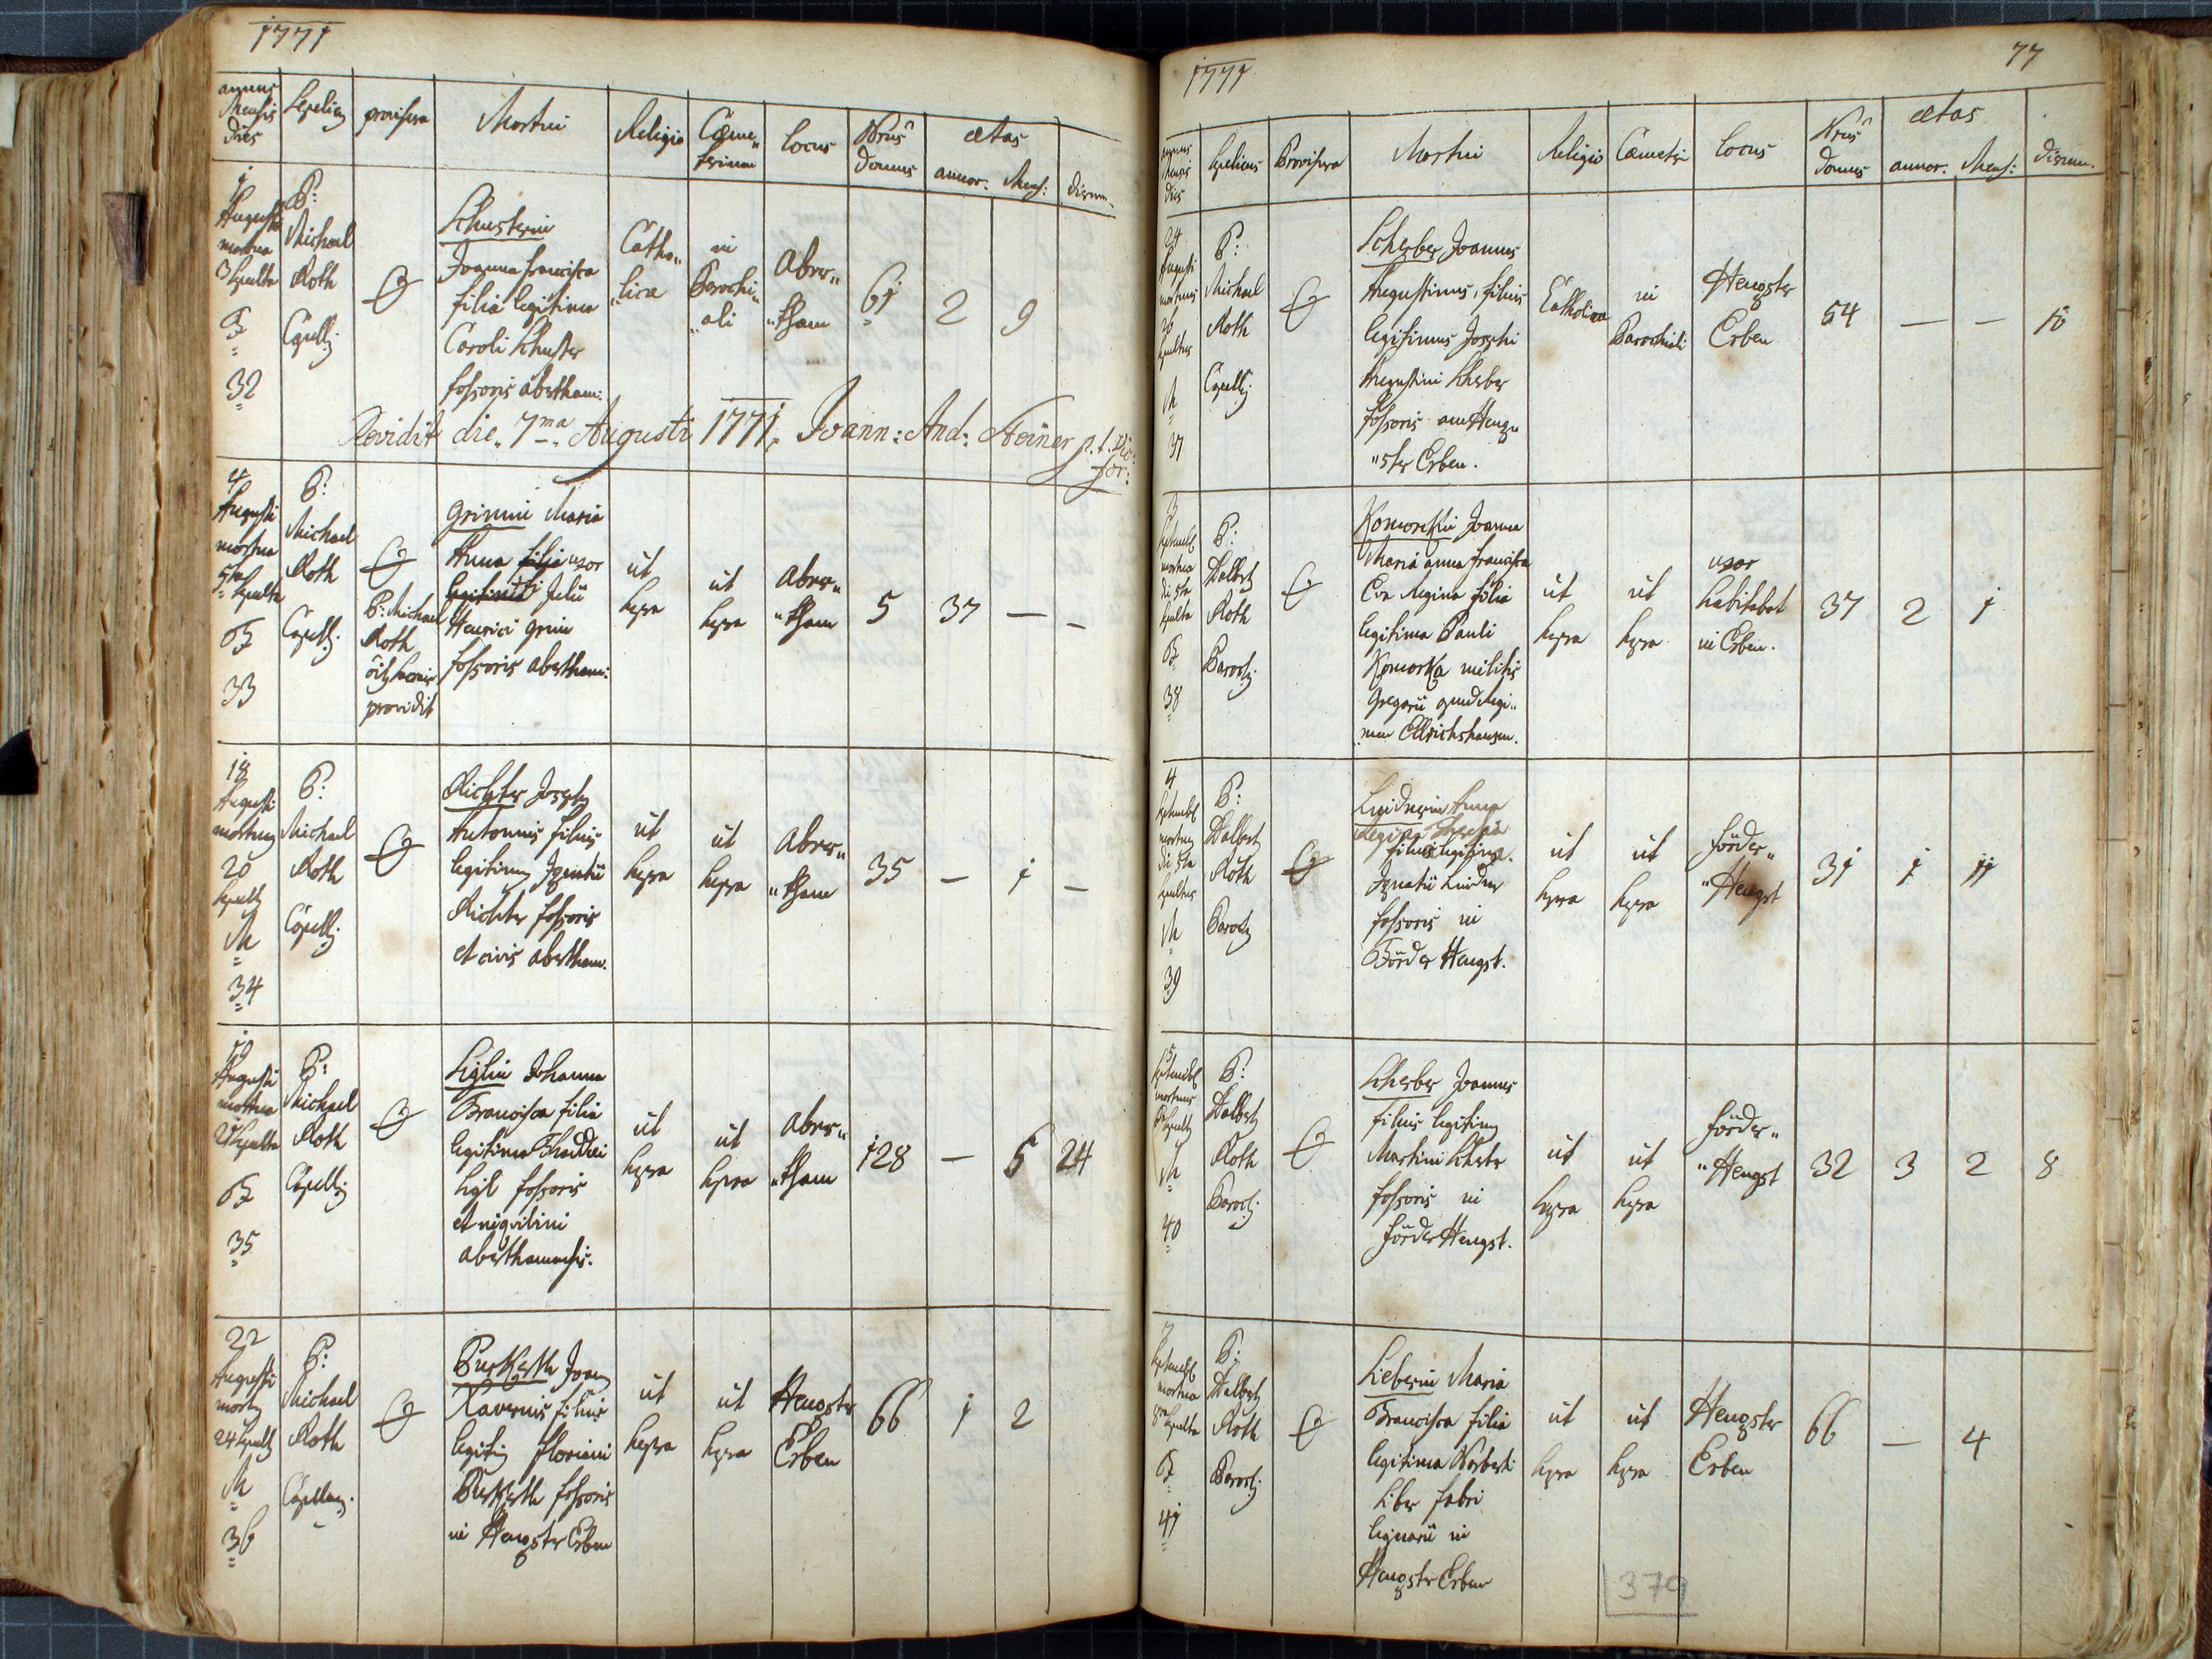 1771
annus Mensis dies
Sepeliens
provisura
Mortui
Religio
Cœme„ terium
Locus
Nrus Domus
ætas
annor.
Mens:
dierum.
1 Augusti mortua 3 sepulta
32
P: Michael Roth Capell:
Schusterin
Joanna Francisca
filia legitima
Caroli Schuster
fossoris abertham:
Catho„
„lica
in
Parochi„
„ali
Aber„
„tham
61
2
9
Revidit die 7ma Augusti 1771. Joann: And:
4 Augusti mortua 5ta sepulta
33
P: Michael Roth Capell:
P: Michael
Roth
providit
Grimin Maria
Anna filia uxor
legitima
Henrici Grim
fossoris abertham:
ut
supra
ut
supra
Aber„
„tham
5
37
—
—
18 Augusti mortuus 20 sepultus
34
P: Michael Roth Capell:
Richter Josephus
Antonius filius
legitimus Ignatii
Richter fossoris
et civis abertham.
ut
supra
ut
supra
Aber„
„tham
35
—
1
—
19 Augusti mortua 21 sepulta
35
P: Michael Roth Capell:
Siglin Johanna
Francisca filia
legitima Thaddei
Sigl fossoris
et inquilini
aberthamensis.
ut
supra
ut
supra
Aber„
„tham
128
—
5
24
22 Augusti 24 sepultus
36
P: Michael Roth Capellan:
PurKerth Joan
Xaverius filius
legitimus Floriani
PurKerth fossoris
in Hengster Erben
ut
supra
ut
supra
Hengster
Erben
66
1
2
1771
77
annus Mensis dies
Sepeliens
Provisura
Mortui
Religio
Cœmeteri
Locus
Nrus
Domus
ætas
annor.
Mens:
dierum.
24 Augusti mortuus 26 sepultus
37
P: Michael Roth Capell:
Scherber Joannes
Augustinus, filius
legitimus Josephi
Augustini Scherber
fossoris am Heng„
„ster Erben.
Catholica
in
Parochiali
Hengster
Erben
54
—
—
10
3 Septembr mortua die 5ta sepulta
38
P: Adalbert Roth Paroch:
Komorkin Joanna
Maria anna Francisca
Eva Regina filia
legitima Pauli
Komorka militis
Gregarii apud Regi„
„men Ellrichshausen.
ut
supra
ut
supra
uxor
habitabat
in Erben.
37
2
1
4 Septembr die 5ta
39
P: Adalbert Roth Paroch:
Anna
Regina
Ignatii
fossoris in
Förder Hengst.
ut
supra
ut
supra
Förder„
„Hengst
31
1
11
5 Septembr mortuus sepultus
40
P: Adalbert Roth Paroch:
Scherber Joannes
filius legitimus
Martini Scherber
fossoris in
Förder Hengst.
ut
supra
ut
supra
Förder„
„Hengst
32
3
2
8
7 Septembr mortua sepulta
41
P: Adalbert Roth Paroch:
Lieberin Maria
Francisca filia
legitima Norberti
Liber fabri
lignarii in
Hengster Erben
ut
supra
ut
supra
Hengster
Erben
66
—
4
379